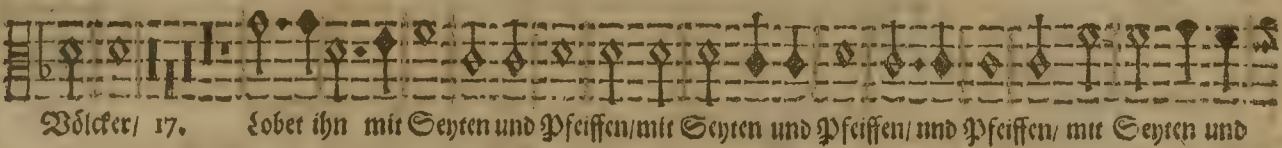 Völcker/ 17. Lobet ihn mit Seyten und Pfeiffen/mit Seyten und Pfeiffen/ und Pfeiffen/ mit Seyten und